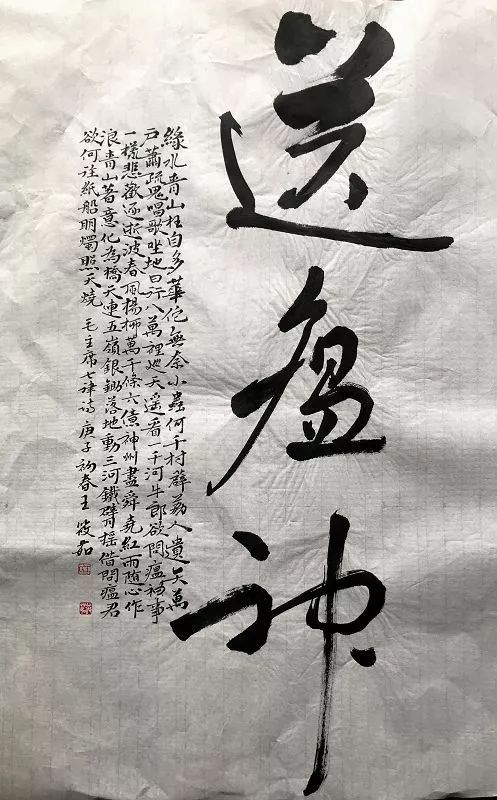 送瘟神
綠水青山枉自多華佗無奈小蟲何千村薜荔人遺矢萬
戶蕭疏鬼唱歌坐地日行八萬裡巡天遥看一千河牛郎欲問瘟神事
一樣悲歡逐逝波春風楊柳萬千條六億神州盡舜堯紅雨随心作
浪青山著意化為橋天連五嶺銀鋤落地動三河鐵臂摇借問瘟君
欲何往紙船明燭照天燒 毛主席七律诗 庚子初春王筱茹